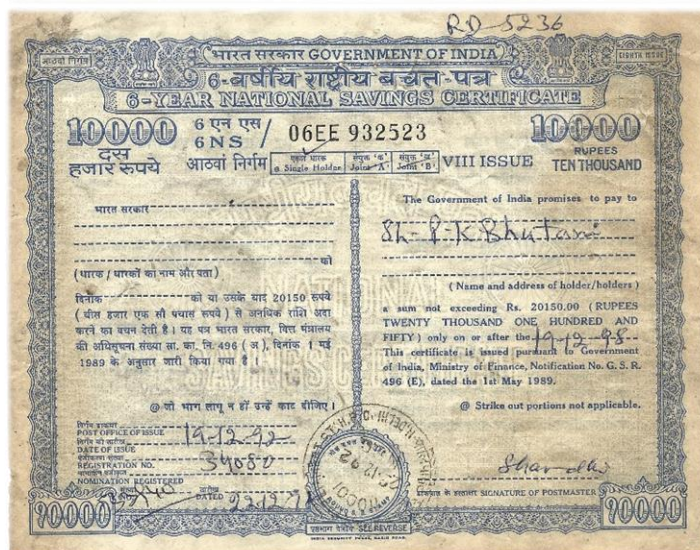 RD-5236
आठवां निर्गम
भारत सरकार GOVERNMENT OF INDIA
EIGHTH ISSUE
6-वर्षीय राष्ट्रीय बचत-पत्र
6-YEAR NATIONAL SAVINGS CERTIFICATE
10000
दस
हजार रुपये
6 एन एस /
6 NS /
06EE 932523
10000
RUPEES
TEN THOUSAND
आठवां निर्गम
एकल धारक
@ Single Holder
संयुक्त 'क'
Joint 'A'
संयुक्त 'ख'
Joint 'B'
VIII ISSUE
भारत सरकार
को
(धारक / धारकों का नाम और पता)
दिनांक को या उसके बाद 20150 रुपये
( बीस हजार एक सौ पचास रुपये ) से अनधिक राशि अदा
करने का वचन देती है । यह पत्र भारत सरकार, वित्त मंत्रालय
की अधिसूचना संख्या सा. का. नि. 496 ( अ ), दिनांक 1 मई
1989 के अनुसार जारी किया गया है ।
@ जो भाग लागू न हों उन्हें काट दीजिए ।
The Government of India promises to pay to
Sh. P. K Bhutani
( Name and address of holder/holders )
a sum not exceeding Rs. 20150.00 (RUPEES
TWENTY THOUSAND ONE HUNDRED AND
FIFTY) only on or after the 19-12-98
This certificate is issued pursuant to Government
of India, Ministry of Finance, Notification No. G. S. R.
496 (E), dated the 1st May 1989.
@ Strike out portions not applicable.
NATIONAL
SAVINGS CERTIFICATE
POST OFFICE OF ISSUE
DATE OF ISSUE 19-12-92
REGISTRATION NO. 34080
NOMINATION REGISTERED
तारीख
DATED 22-12-9
SIGNATURE OF POSTMASTER
10000
SEE REVERSE
10000